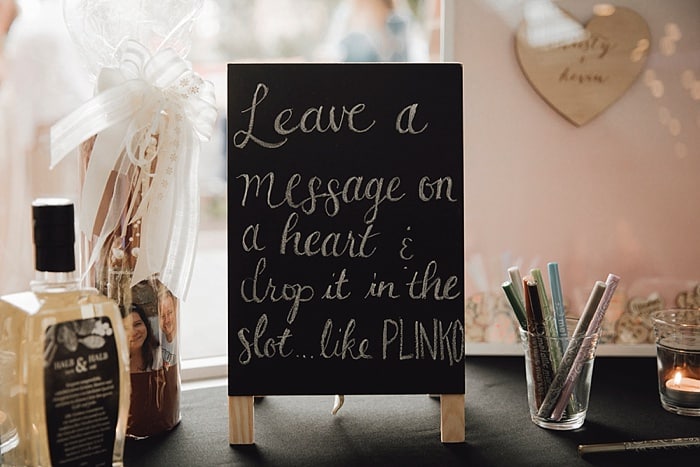 Leave a
message on
a heart &
drop it in the
slot...like PLINKO
HALB & HALB
& kevin